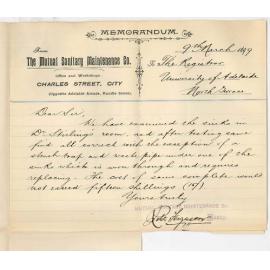 MEMORANDUM.
9th March 1899
From
The Mutual Sanitary Maintenance Co.
Office and Workshops
CHARLES STREET, CITY
(Opposite Adelaide Arcade, Rundle Street)
To The Registrar
University of Adelaide
North Terrace
Dear Sir,
We have examined the sinks in
Dr Stirling's room, and after testing same
find all correct with the exception of a
and waste pipe under one of the
sinks which is worn through and requires
replacing. The cost of same complete would
not exceed fifteen shillings (15/)
Yours truly
MUTUAL MAINTENANCE CO.
Ferguson